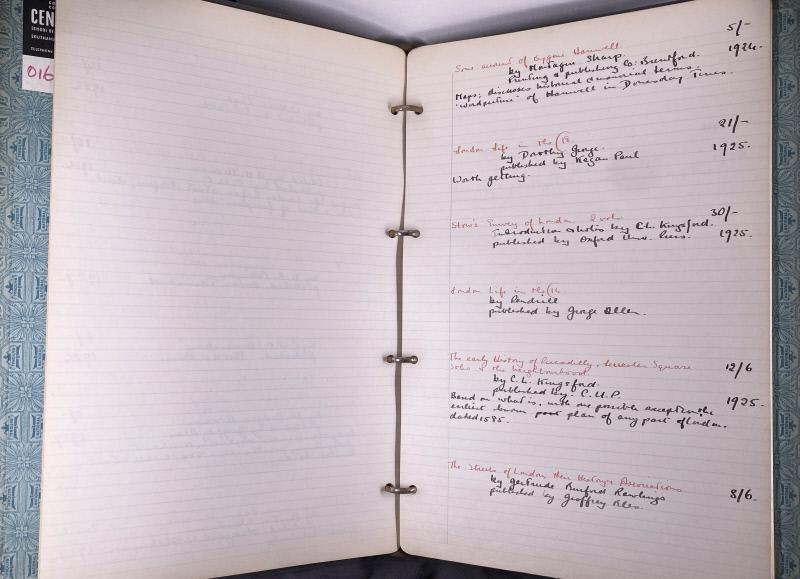 CEN
SCHOOL OF
SOUTHAM
TELEPHONE
016
5/-
Some account of Bygone Hanwell.
by Montagu Sharp. 1924.
Printing & publishing Co. Brentford.
Maps; discusses historical & manorial terms -
"wordpicture" of Hanwell in Domesday Times.
21/-
London Life in the 18
by Dorothy George.
published by Kegan Paul 1925.
Worth getting.
Stow's Survey of London 2 vols. 30/-
Introduction & Notes by C.L. Kingsford.
published by Oxford Univ. Press. 1925.
London Life in the 14
by Pendrill
published by George Allen.
The early History of Piccadilly, Leicester Square 12/6
Soho & the Neighbourhood.
by C. L. Kingsford.
published by C.U.P. 1925.
Based on what is, with one possible exception, the
earliest known plan of any part of London.
dated 1585.
The Streets of London their History & Associations
by Gertrude Burford Rawlings 8/6.
published by Geoffrey Bles.